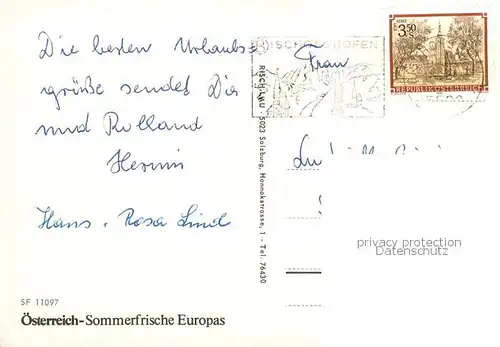 Die besten Urlaubs=
grüße sendet Dir
und Rolland
Hermi
Hans + Rosa Lind
SF 11097
Österreich-Sommerfrische Europas
RISCH-LAU · 5023 Salzburg, Hannakstrasse, 1 - Tel. 76430
BISCHOFSHOFEN
3.50
REPUBLIK ÖSTERREICH
Frau
privacy protection
Datenschutz